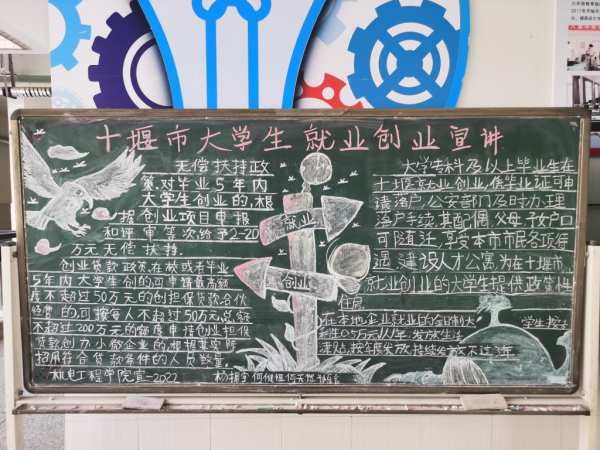 十堰市大学生就业创业宣讲
无偿扶持政
策,对毕业5年内
大学生创业的,根
据创业项目申报
和评审等次,给予2-20
万元无偿扶持.
创业贷款政策,在校或者毕业
5年内大学生创的,可申请最高额
度不超过50万元的创担保贷款合伙
经营的,可按每人不超过50万元,总额
不超过200万元的额度申请创业担保
贷款,创办小微企业的,根据其实际
招用符合贷款条件的人员数量.
机电工程学院宣-2022
就业
创业
大学专科及以上毕业生在
十堰就业创业,凭毕业证可申
请落户,公安部门及时办理
落户手续,其配偶、父母、子女户口
可随迁,享受本市市民各项待
遇,建设人才公寓,为在十堰市
就业创业的大学生提供政策性
住房
在本地企业就业的全日制大
万元/年发放生活
津贴,按年度发放,持续发放不过3年.